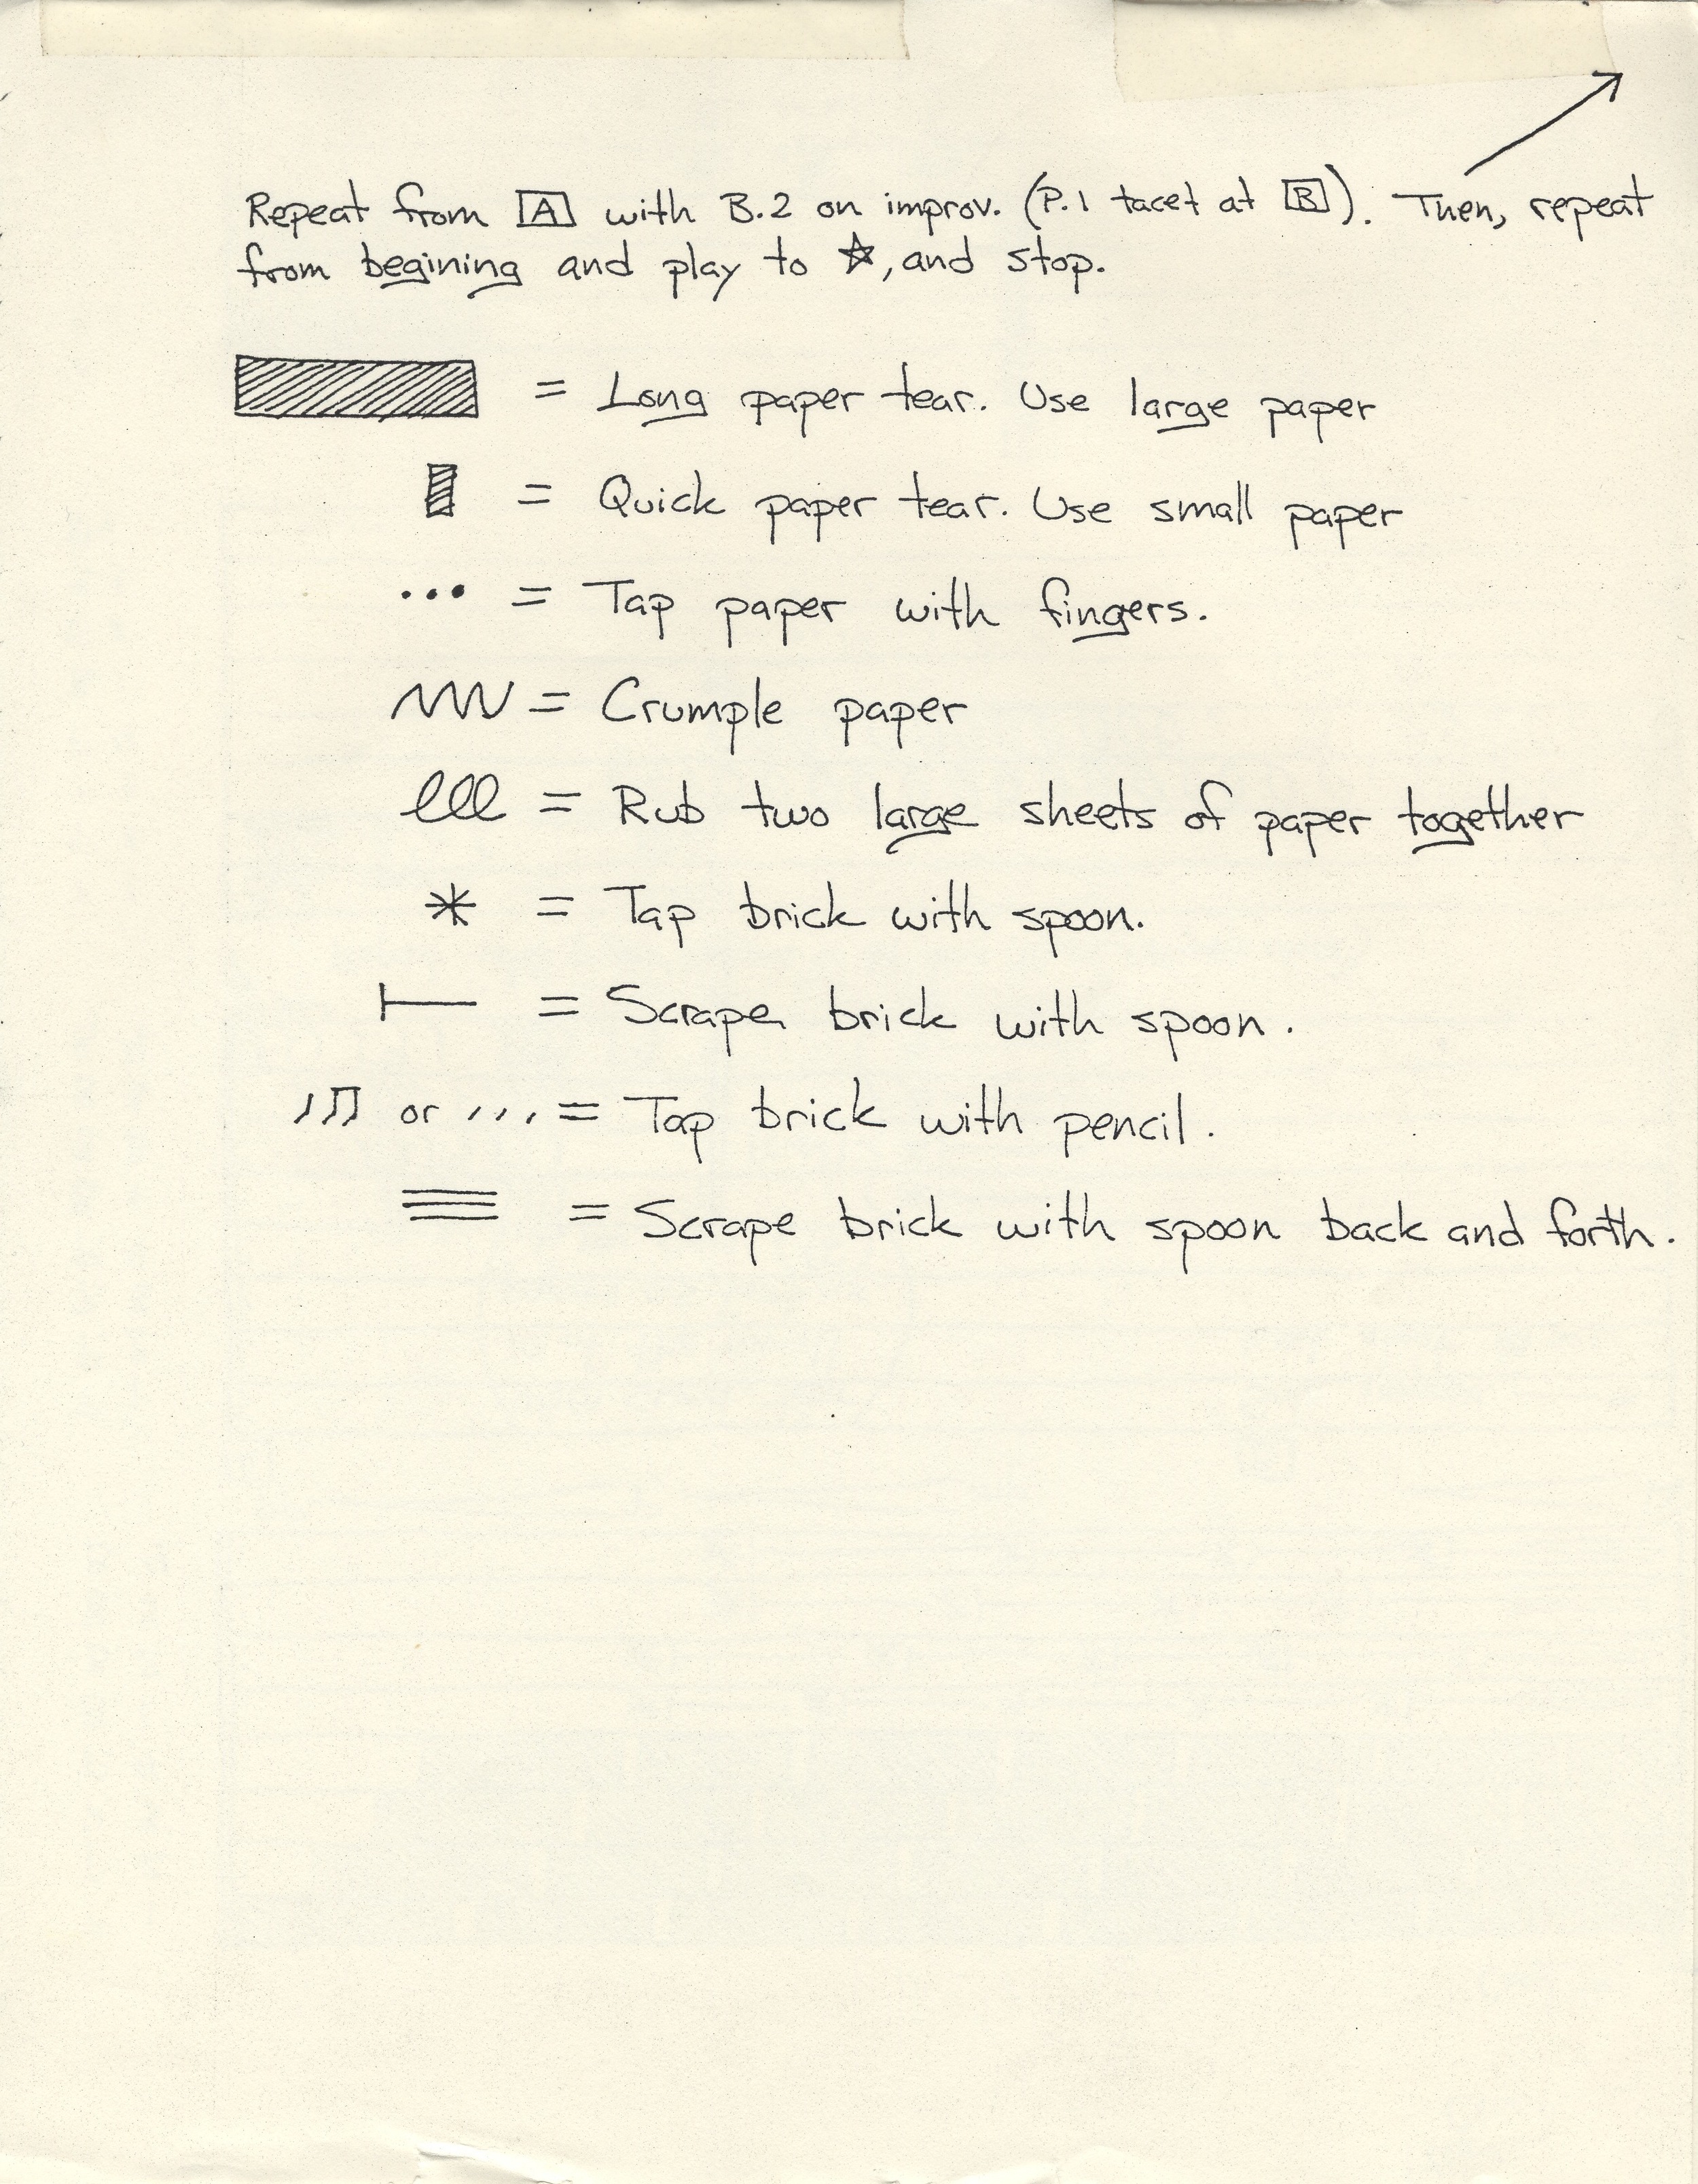 Repeat from A with B.2 on improv. (P.1 tacet at B). Then, repeat
from begining and play to ☆, and stop.
= Long paper tear. Use large paper
= Quick paper tear. Use small paper
••• = Tap paper with fingers.
= Crumple paper
= Rub two large sheets of paper together
* = Tap brick with spoon.
= Scrape brick with spoon.
or = Tap brick with pencil.
= Scrape brick with spoon back and forth.